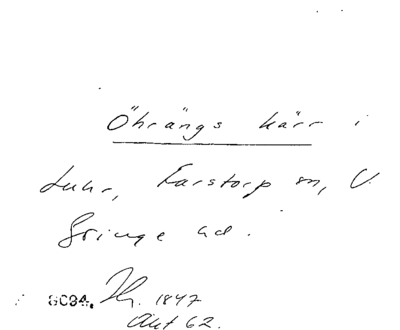 Öhrängs kärr i
Luhr, Karstorp sn, V.
Göinge hd.
8094. Hg. 1847
Akt 62.